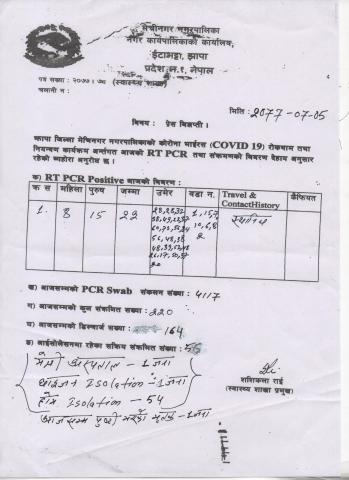 मेचीनगर नगरपालिका
नगर कार्यपालिकाको कार्यालय,
ईटाभट्टा, झापा
प्रदेश न.१, नेपाल
पत्र सख्या : २०७७।
(स्वास्थ्य शाखा)
चलानी न :
मिति : २०७७-०७-०५
विषय : प्रेस विज्ञप्ती।
झापा जिल्ला मेचिनगर नगरपालिकाको कोरोना भाईरस (COVID 19) रोकथाम तथा
नियन्त्रण कार्यक्रम अर्न्तगत आजको RT PCR तथा संकमणको बिबरण देहाय अनुसार
रहेको व्यहोरा अनुरोध छ ।
क) RT PCR Positive आजको बिबरण :
क्र स महिला पुरुष जम्मा उमेर वडा न. Travel & ContactHistory कैफियत
1. 8 15 23 स्थानिय
ख) आजसम्मको PCR Swab संकलन संख्या : 4117
ग) आजसम्मको कुल संकमित संख्या : 220
घ) आजसम्मको डिस्चार्ज संख्या : 164
ङ) आईसोलेसनमा रहेका सक्रिय संकमित संख्या : 56
मेची अस्पताल - 1 जना
Isolation - 1 जना
होम Isolation - 54
आजसम्म - 1 जना
शशिकला राई
(स्वास्थ्य शाखा प्रमुख)